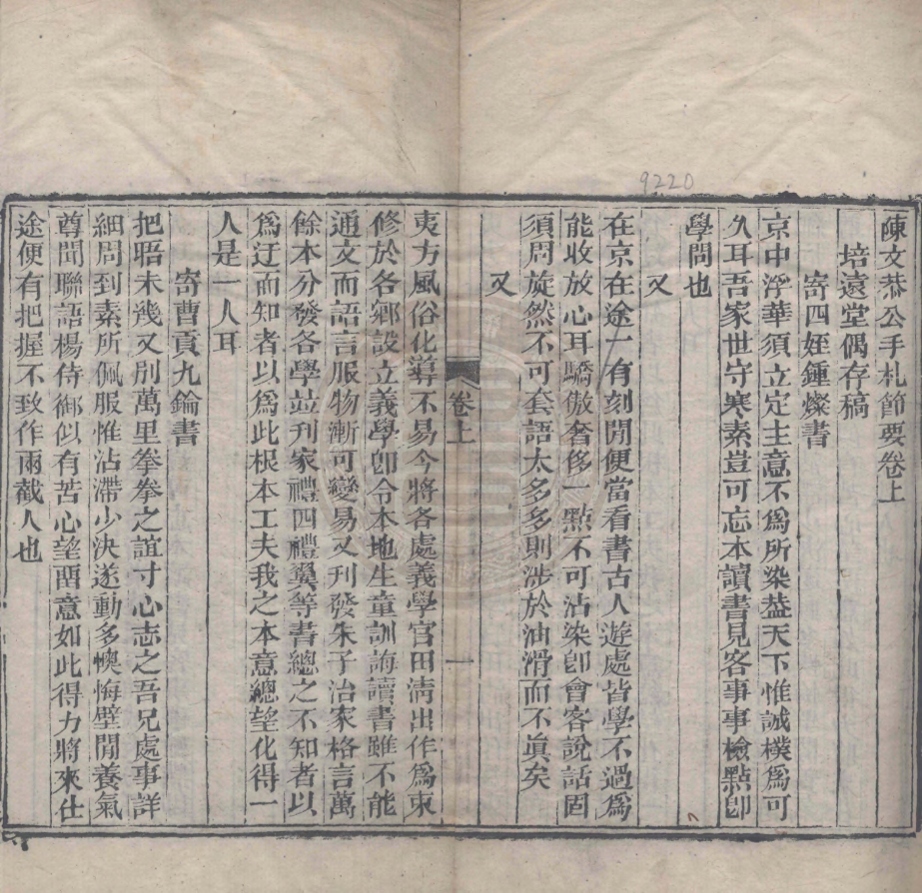 9220
陳文恭公手札節要卷上
培遠堂偶存稿
寄四姪鍾燦書
京中浮華須立定主意不爲所染葢天下惟誠樸爲可
久耳吾家世守寒素豈可忘本讀書見客事事檢點卽
學問也
又
在京在途一有刻閒便當看書古人遊處皆學不過爲
能收放心耳驕傲奢侈一點不可沾染卽會客說話固
須周旋然不可套語太多多則涉於油滑而不眞矣
又
卷上
一
夷方風俗化導不易今將各處義學官田淸出作爲束
修於各鄉設立義學卽令本地生童訓誨讀書雖不能
通文而語言服物漸可變易又刊發朱子治家格言萬
餘本分發各學並刊家禮四禮翼等書總之不知者以
爲迂而知者以爲此根本工夫我之本意總望化得一
人是一人耳
寄曹貢九錀書
把晤未幾又別萬里拳拳之誼寸心志之吾兄處事詳
細周到素所佩服惟沾滯少決遂動多懊悔壁間養氣
尊聞聯語楊侍御似有苦心望留意如此得力將來仕
途便有把握不致作兩截人也